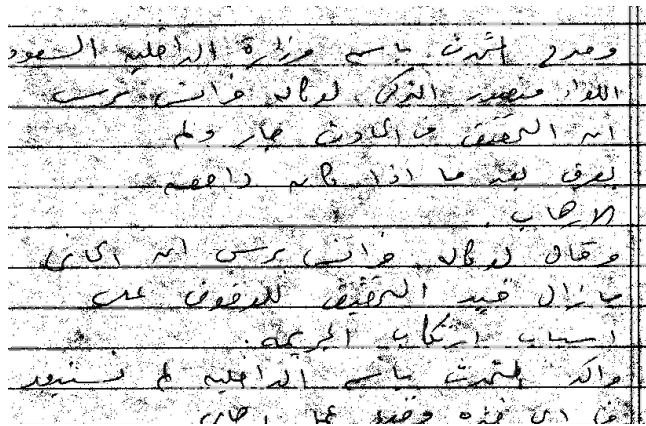 وصرح المتحدث باسم وزارة الداخلية السعود
اللواء منصور التركي لوكالة فرانس برس
ان التحقيق في الحادث جار ولم
يعرف بعد ما اذا كان دافعه
الارهاب.
وقال لوكالة فرانس برس ان الجاني
مازال قيد التحقيق للوقوف على
اسباب ارتكاب الجريمة.
واكد المتحدث باسم الداخلية لم نستبعد
في اي وجود عمل ارهابي